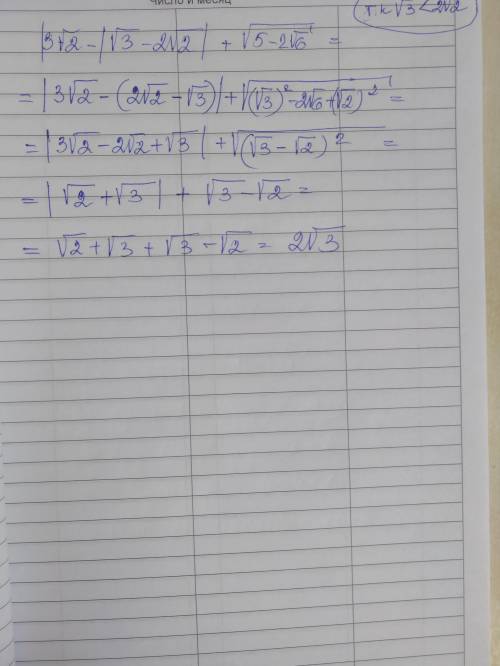 число и месяц
т.к √3 < 2√2
|3√2 - |√3 - 2√2| + √(5 - 2√6) =
= |3√2 - (2√2 - √3)| + √((√3)² - 2√6 + (√2)²) =
= |3√2 - 2√2 + √3| + √((√3 - √2)²) =
= |√2 + √3| + √3 - √2 =
= √2 + √3 + √3 - √2 = 2√3